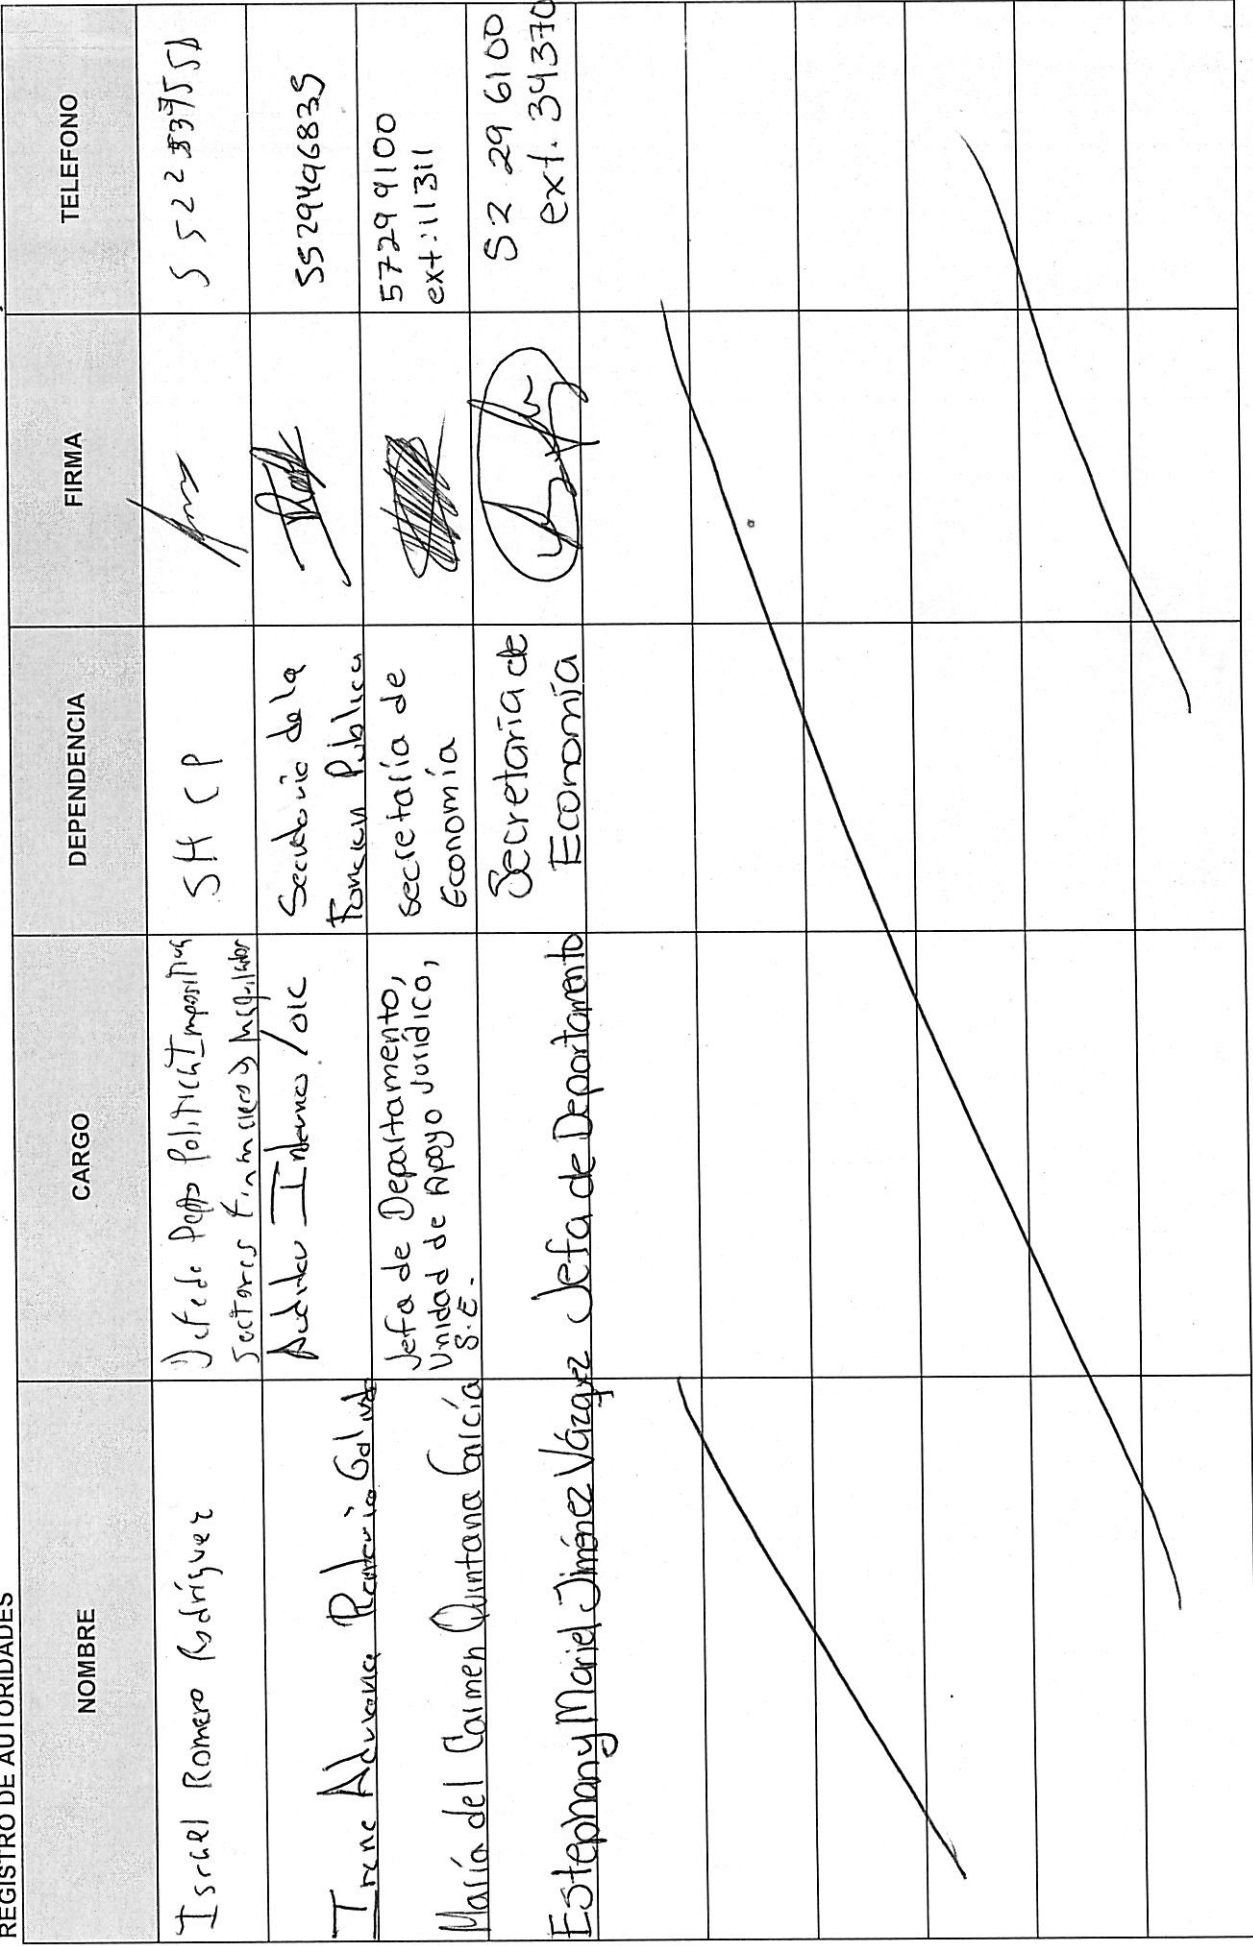 REGISTRO DE AUTORIDADES
NOMBRE
CARGO
DEPENDENCIA
FIRMA
TELEFONO
Israel Romero Rodríguez
Jefe de Depto Política Impositiva
Sectores Financieros y Maquilador
SHCP
Irene Adriana
Auditor Interno / OIC
Secretaria de la
Función Pública
5529496835
María del Carmen Quintana García
Jefa de Departamento,
Unidad de Apoyo Jurídico,
S.E.
secretaría de
Economía
57299100
ext:11311
Estephany Mariel Jiménez Vázquez
Jefa de Departamento
Secretaría de
Economía
52 29 6100
ext. 34370